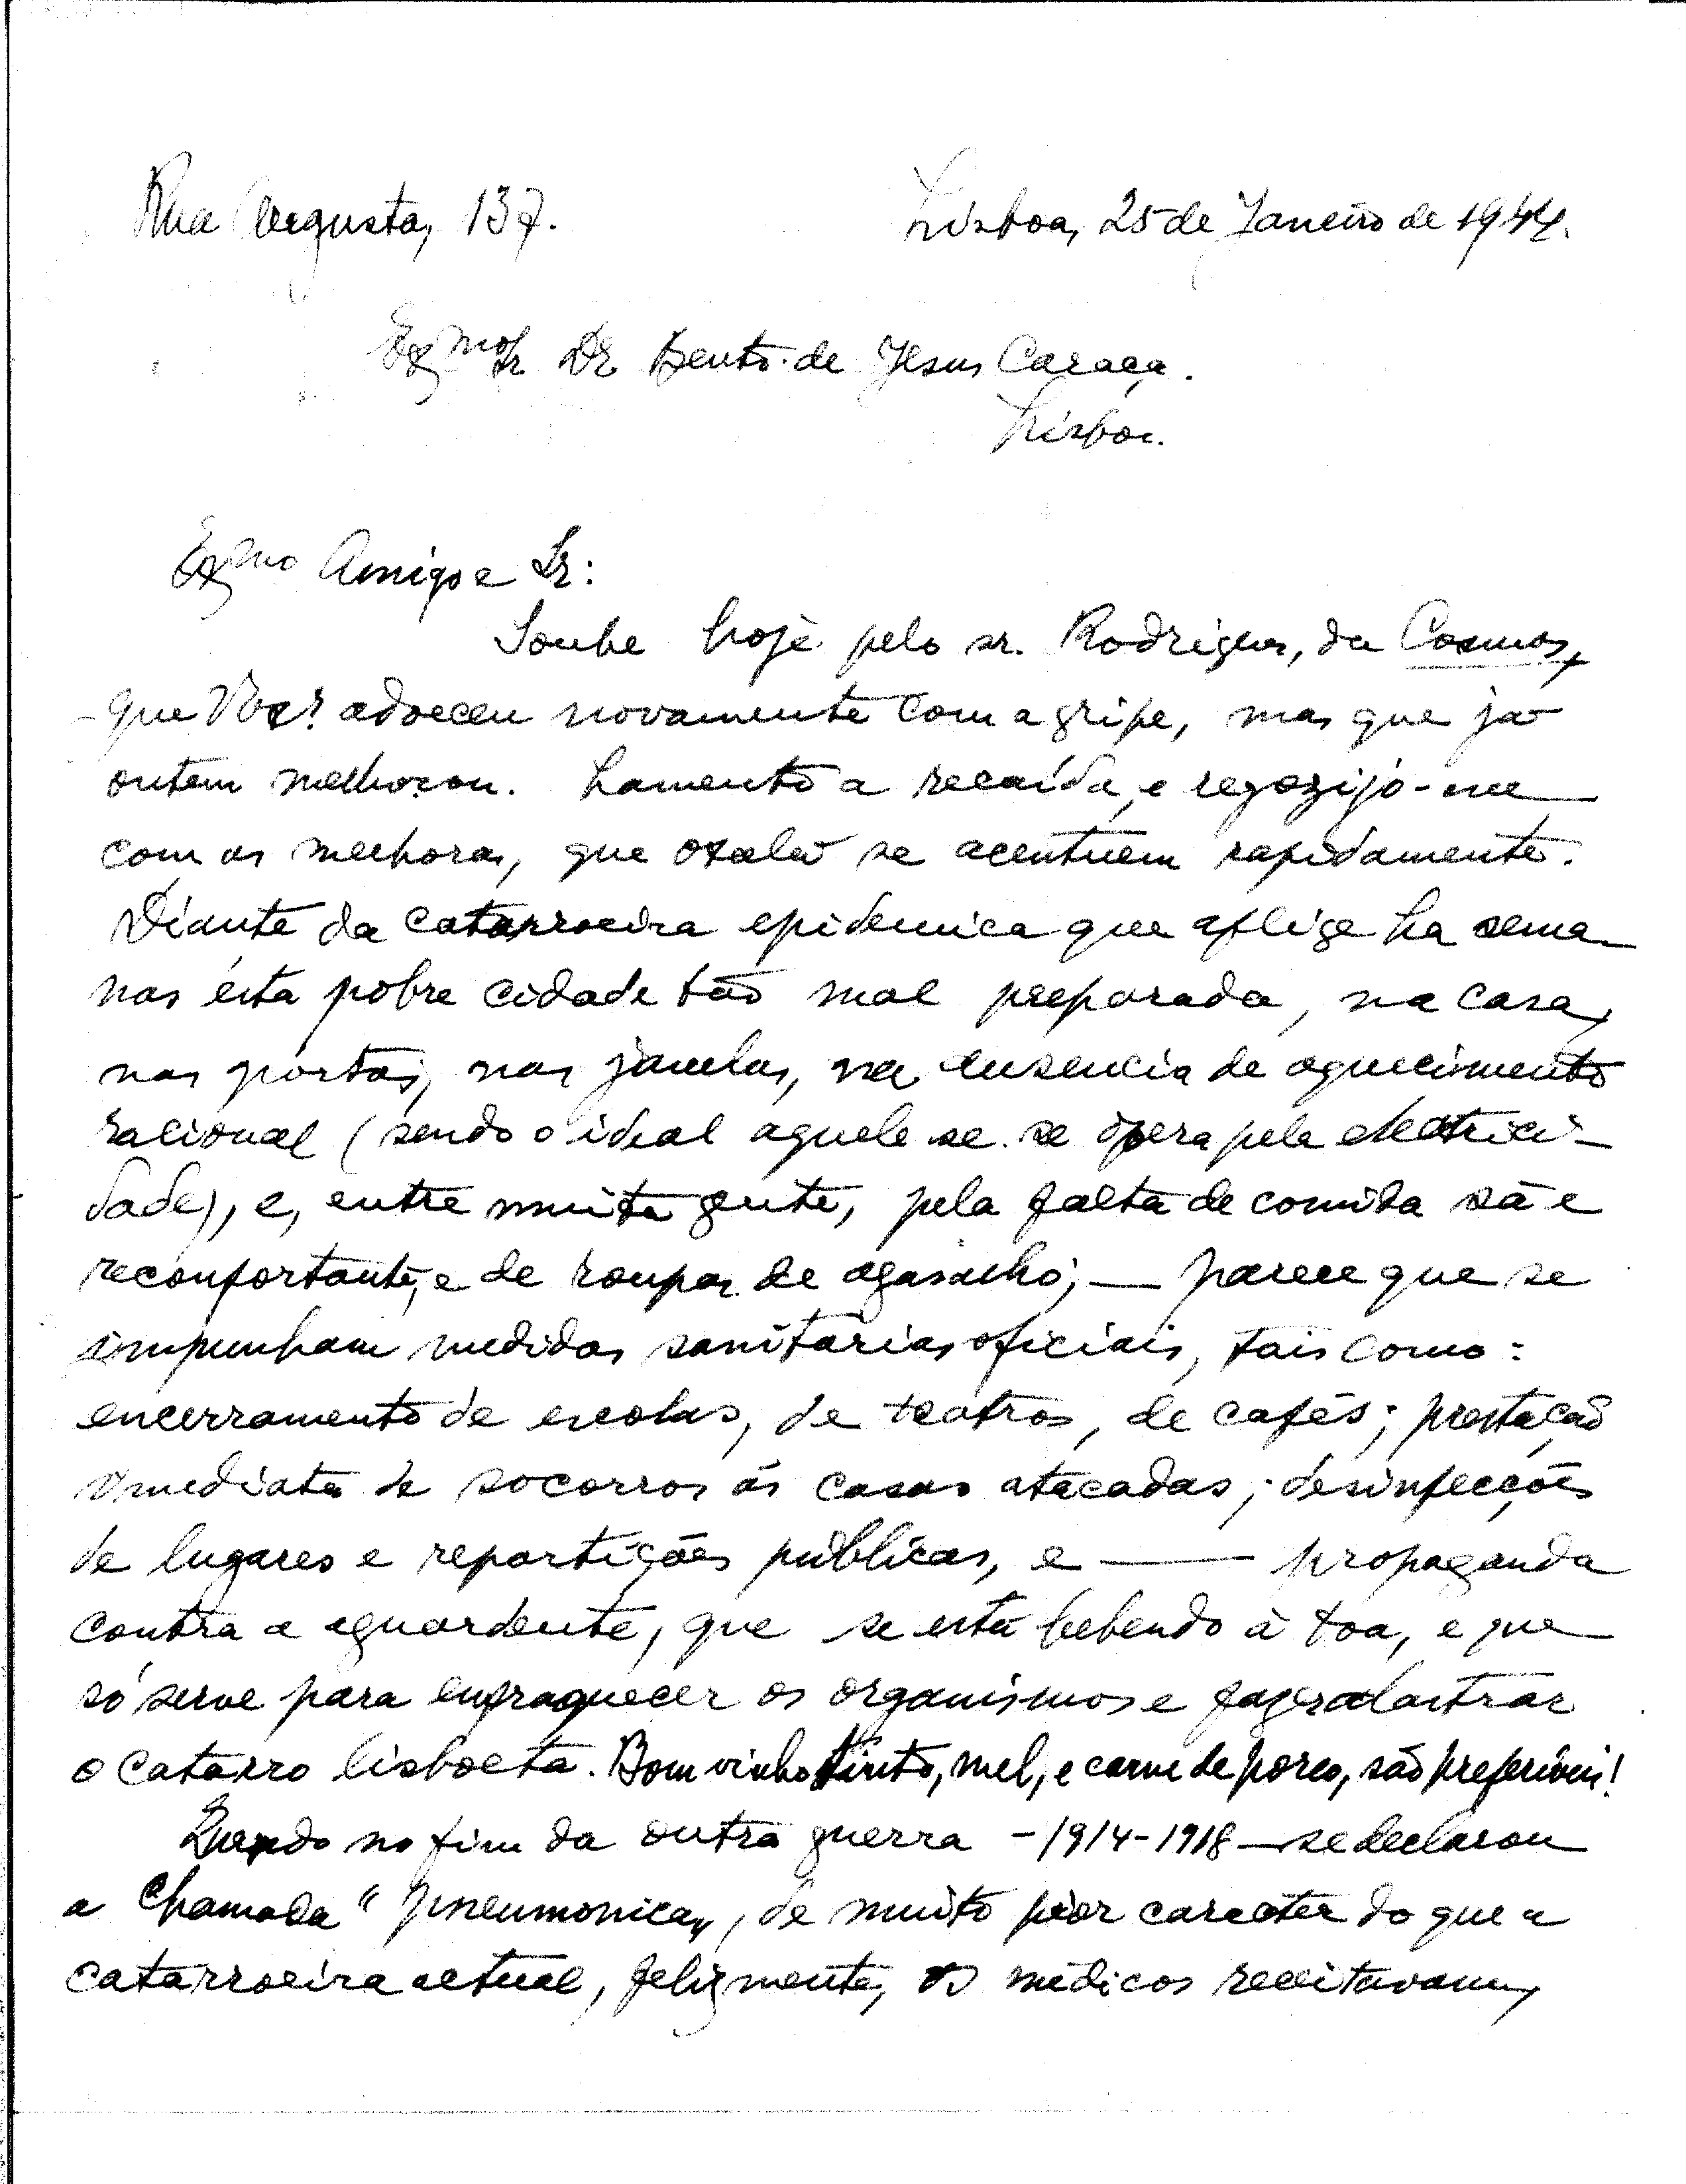 Rua Augusta, 137. Lisboa, 25 de Janeiro de 1944.
Exmo Sr Dr Bento de Jesus Caraça.
Lisboa.
Exmo Amigo e Sr:
Soube hoje pelo sr. Rodrigues, da Cosmos,
que adoeceu novamente com a gripe, mas que já
ontem melhorou. Lamento a recaída, e regozijo-me
com as melhoras, que oxalá se acentuem rapidamente.
Diante da catarroeira epidemica que aflige ha sema-
nas ésta pobre cidade tão mal preparada, na casa,
nas pórtas, nas janelas, na ausencia de aquecimento
racional (sendo o ideal aquele se se opera pela electrici-
dade), e, entre muita gente, pela falta de comida sã e
reconfortante, e de roupas de agasalho; — parece que se
impunham medidas sanitárias oficiais, tais como:
encerramento de escolas, de teatros, de cafés; prestação
imediata de socorros ás casas atacadas; desinfecções
de lugares e repartições públicas, e — propaganda
contra a aguardente, que se está bebendo à toa, e que
só serve para enfraquecer os organismos e fazer alastrar
o catarro lisboeta. Bom vinho tinto, mel, e carne de porco, são preferíveis!
Quando no fim da outra guerra - 1914-1918 - se declarou
a chamada "pneumonica", de muito pior caracter do que a
catarroeira actual, felizmente, os médicos receitavam,